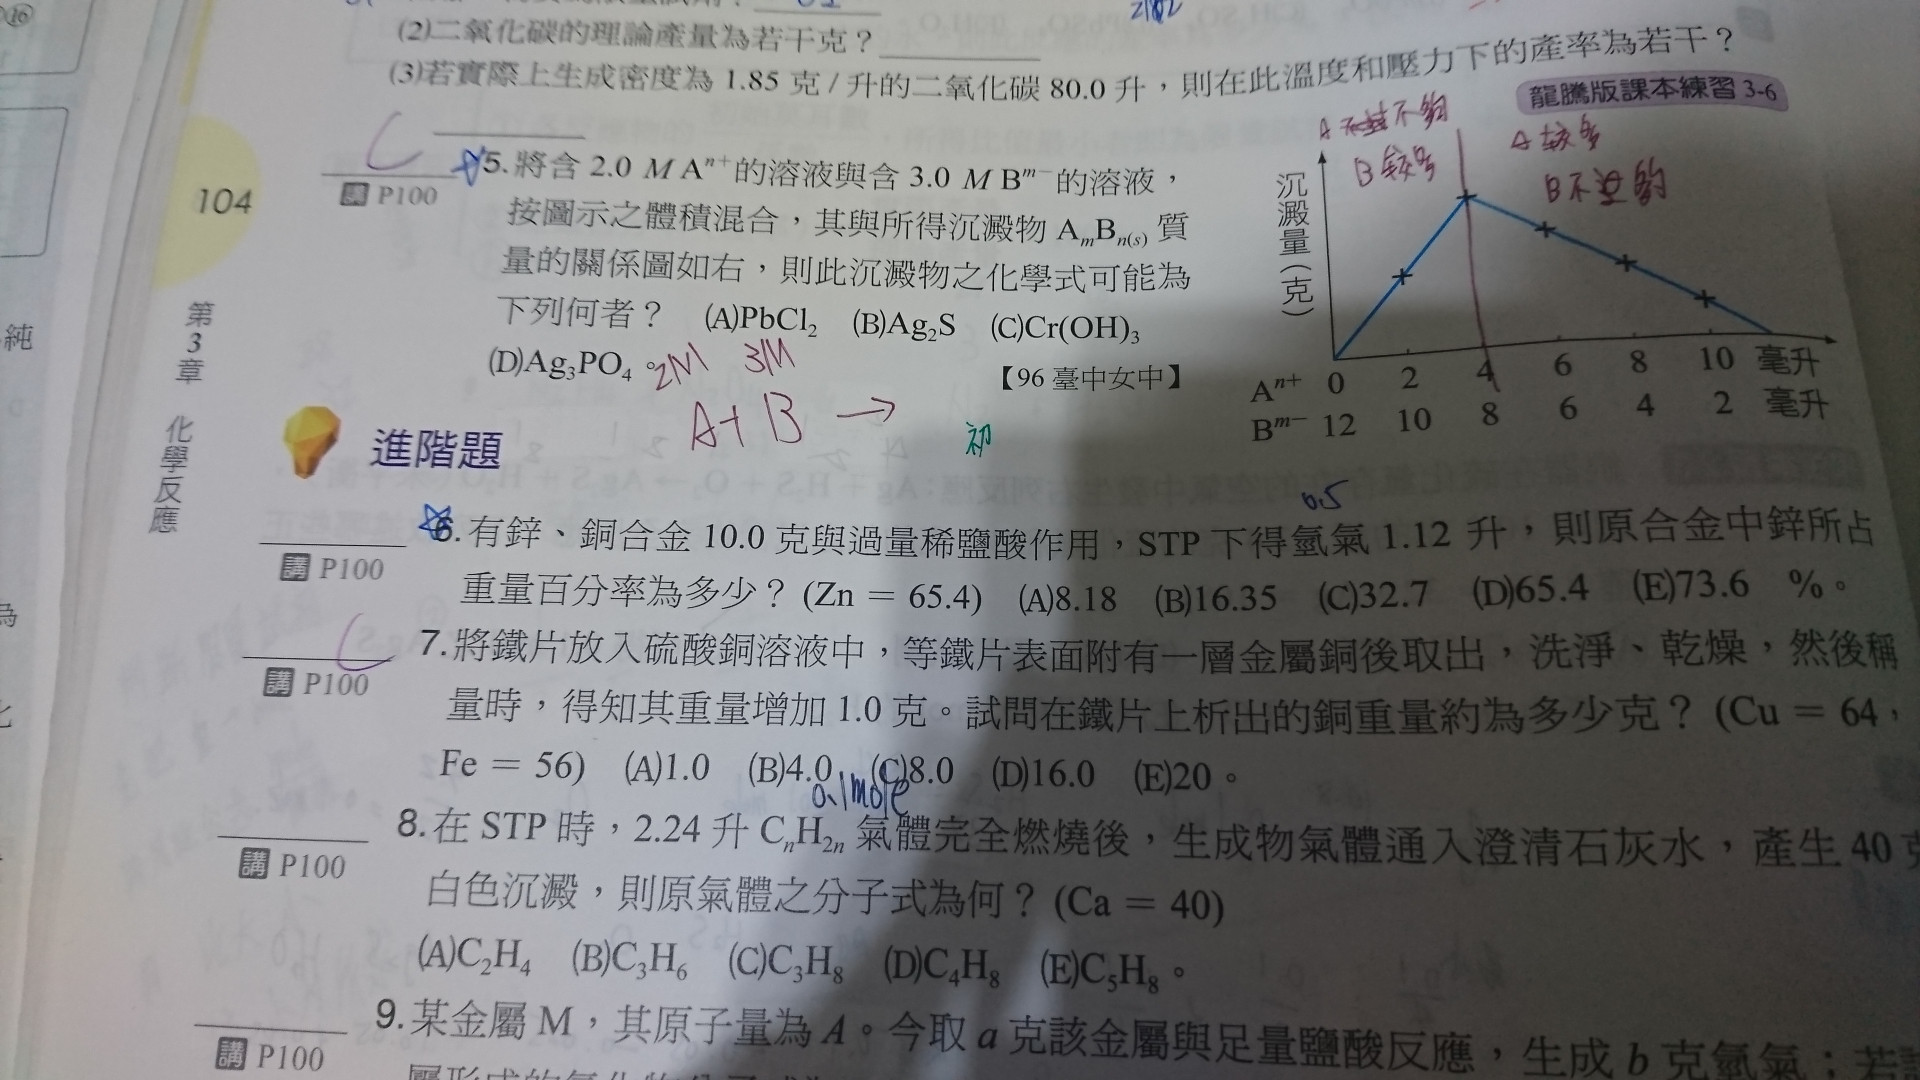 (2)二氧化碳的理論產量為若干克？
(3)若實際上生成密度為 1.85 克 / 升的二氧化碳 80.0 升，則在此溫度和壓力下的產率為若干？
龍騰版課本練習 3-6
104
第3章 化學反應
C
講 P100
5. 將含 2.0 M Aⁿ⁺ 的溶液與含 3.0 M Bᵐ⁻ 的溶液，
按圖示之體積混合，其與所得沉澱物 AₘBₙ₍ₛ₎ 質
量的關係圖如右，則此沉澱物之化學式可能為
下列何者？ (A)PbCl₂ (B)Ag₂S (C)Cr(OH)₃
(D)Ag₃PO₄。
【96 臺中女中】
2M 3M
A+B →
初
不夠
B 較多
A 較多
B不足夠
沉澱量(克)
Aⁿ⁺ 0 2 4 6 8 10 毫升
Bᵐ⁻ 12 10 8 6 4 2 毫升
進階題
0.5
講 P100
6. 有鋅、銅合金 10.0 克與過量稀鹽酸作用，STP 下得氫氣 1.12 升，則原合金中鋅所占
重量百分率為多少？(Zn = 65.4) (A)8.18 (B)16.35 (C)32.7 (D)65.4 (E)73.6 %。
C
講 P100
7. 將鐵片放入硫酸銅溶液中，等鐵片表面附有一層金屬銅後取出，洗淨、乾燥，然後稱
量時，得知其重量增加 1.0 克。試問在鐵片上析出的銅重量約為多少克？(Cu = 64，
Fe = 56) (A)1.0 (B)4.0 (C)8.0 (D)16.0 (E)20。
0.1mole
講 P100
8. 在 STP 時，2.24 升 CₙH₂ₙ 氣體完全燃燒後，生成物氣體通入澄清石灰水，產生 40
白色沉澱，則原氣體之分子式為何？(Ca = 40)
(A)C₂H₄ (B)C₃H₆ (C)C₃H₈ (D)C₄H₈ (E)C₅H₈。
講 P100
9. 某金屬 M，其原子量為 A。今取 a 克該金屬與足量鹽酸反應，生成 b 克氫氣；若
純
為